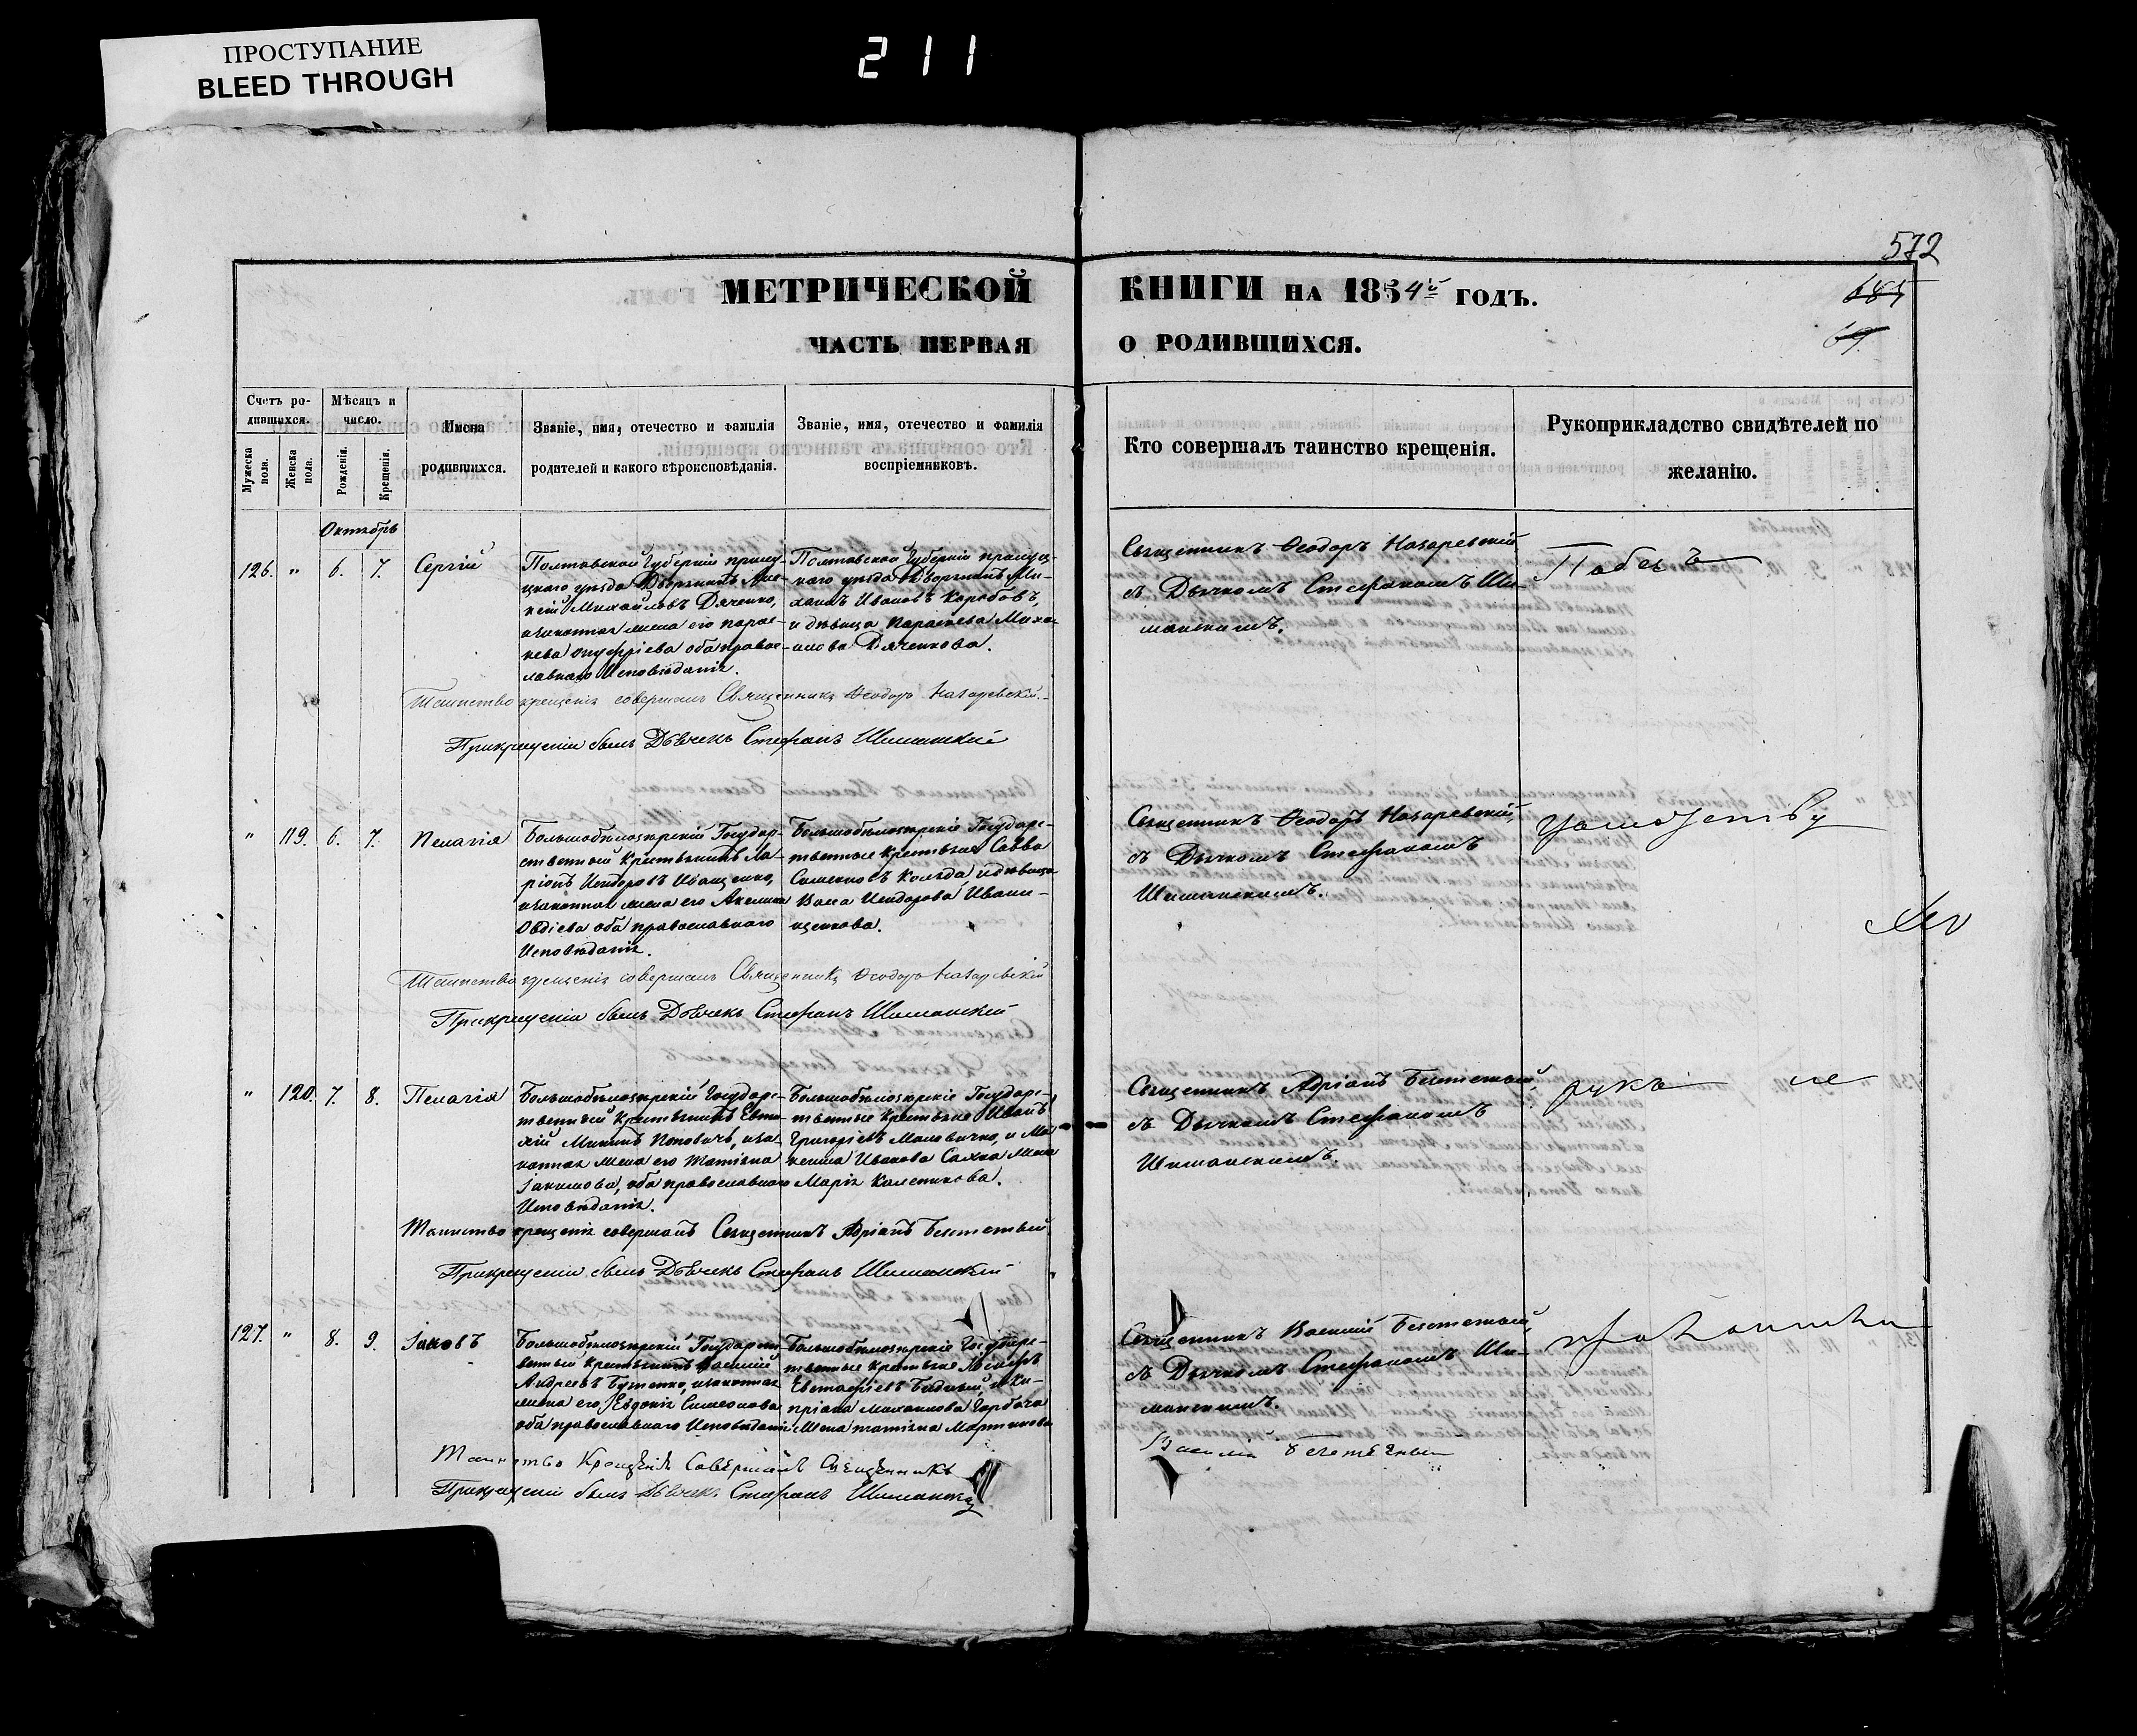 ПРОСТУПАНИЕ
BLEED THROUGH
211
572
685
69.
МЕТРИЧЕСКОЙ КНИГИ НА 1854й ГОДЪ.
ЧАСТЬ ПЕРВАЯ О РОДИВШИХСЯ.
Счетъ ро-
дившихся.
Мужеска пола.
Женска пола.
Мѣсяцъ и
число.
Рожденія.
Крещенія.
Имена
родившихся.
Званіе, имя, отечество и фамилія
родителей и какого вѣроисповѣданія.
Званіе, имя, отечество и фамилія
воспріемниковъ.
Кто совершалъ таинство крещенія.
Рукоприкладство свидѣтелей по
желанію.
Октябрь
126. " 6. 7. Сергій
Полтавской Губерніи прилу-
цкаго уѣзда Дворянинъ Але-
ксій Михайловъ Дяченко,
изаконная жена его Парас-
кева Онуфріева оба правос-
лавнаго Исповѣданія.
Полтавской Губерніи прилуц-
каго уѣзда Дворянинъ Ми-
хаилъ Ивановъ Коробовъ,
и дѣвица Параскева Миха-
илова Дяченкова.
Священникъ Ѳеодоръ Назаревскій,
съ Дьячкомъ Стефаномъ Ши-
манскимъ.
Таинство крещенія совершалъ Священникъ Ѳеодоръ Назаревскій.
Прикрещеніи былъ Дьячекъ Стефанъ Шиманскій
" 119. 6. 7. Пелагія
Большобѣлозерскій Государ-
ственный Крестьянинъ Ла-
ріонъ Исидоровъ Иващенко,
изаконная жена его Акелина
Овдіева оба православнаго
Исповѣданія.
Большобѣлозерскіе Государс-
твенные Крестьяне Савва
Симеоновъ Коляда идѣвица
Исидорова Иван-
щенкова.
Священникъ Ѳеодоръ Назаревскій,
съ Дьячкомъ Стефаномъ
Шиманскимъ.
Таинство крещенія совершалъ Священникъ Ѳеодоръ Назаревскій
Прикрещеніи былъ Дьячекъ Стефанъ Шиманскій
" 120. 7. 8. Пелагія
Большобѣлозерскій Государс-
твенный Крестьянинъ
Поповичъ, иза-
конная жена его Татіяна
Іакимова, оба православнаго
Исповѣданія.
Большобѣлозерскіе Государс-
твенные Крестьяне Иванъ
Григоріевъ Маловичко, и
Ивановa жена
Марія Колесникова.
Священникъ Адріанъ
съ Дьячкомъ Стефаномъ
Шиманскимъ.
рукъ не
Таинство крещенія совершалъ Священникъ Адріанъ
Прикрещеніи былъ Дьячекъ Стефанъ Шиманскій
127. " 8. 9. Іаковъ
Большобѣлозерскій Государст-
венный Крестьянинъ Василій
Андреевъ Бутенко, изаконная
жена его Евдокія Симеонова
оба православнаго Исповѣданія
Большобѣлозерскіе Государс-
твенные Крестьяне
Евстафіевъ Бидный, и Ки-
пріана Михаилова Горбача
жена татіяна Мартинова
Священникъ Василій
съ Дьячкомъ Стефаномъ Ши-
манскимъ.
Таинство Крещенія Совершалъ Священникъ
Василій
Прикрещеніи былъ Дьячекъ Стефанъ